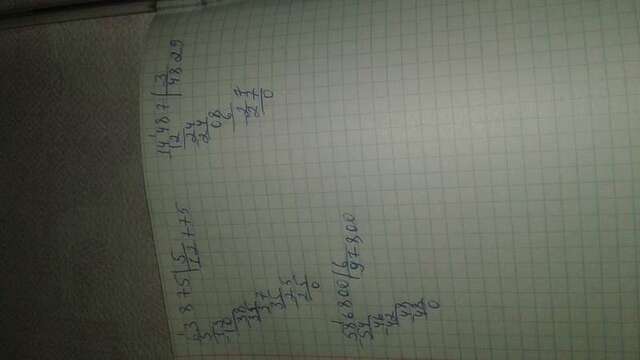 63 875 | 5
5 12775
13
10
38
35
37
35
25
25
0
14 487 | 3
12 4829
24
24
08
6
27
27
0
586800 | 6
54 97800
46
42
48
48
0